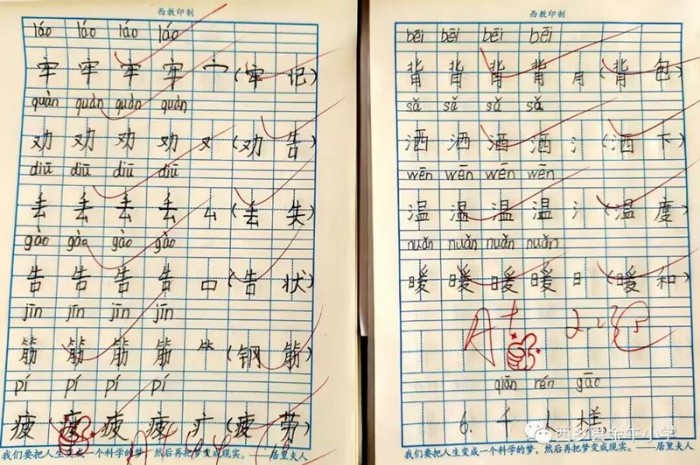 西教印制
láo láo láo láo
牢 牢 牢 牢 宀 (牢 记)
quàn quàn quàn quàn
劝 劝 劝 劝 又 (劝 告)
diū diū diū diū
丢 丢 丢 丢 厶 (丢 失)
gào gào gào gào
告 告 告 告 口 (告 状)
jīn jīn jīn jīn
筋 筋 筋 筋 ⺮ (钢 筋)
pí pí pí pí
疲 疲 疲 疲 疒 (疲 劳)
我们要把人生变成一个科学的梦,然后再把梦变成现实。——居里夫人
西教印制
bēi bēi bēi bēi
背 背 背 背 月 (背 包)
sǎ sǎ sǎ sǎ
洒 洒 洒 洒 氵 (洒 下)
wēn wēn wēn wēn
温 温 温 温 氵 (温 度)
nuǎn nuǎn nuǎn nuǎn
暖 暖 暖 暖 日 (暖 和)
A+
qiān rén gāo
6. 千 人 糕
我们要把人生变成一个科学的梦,然后再把梦变成现实。——居里夫人